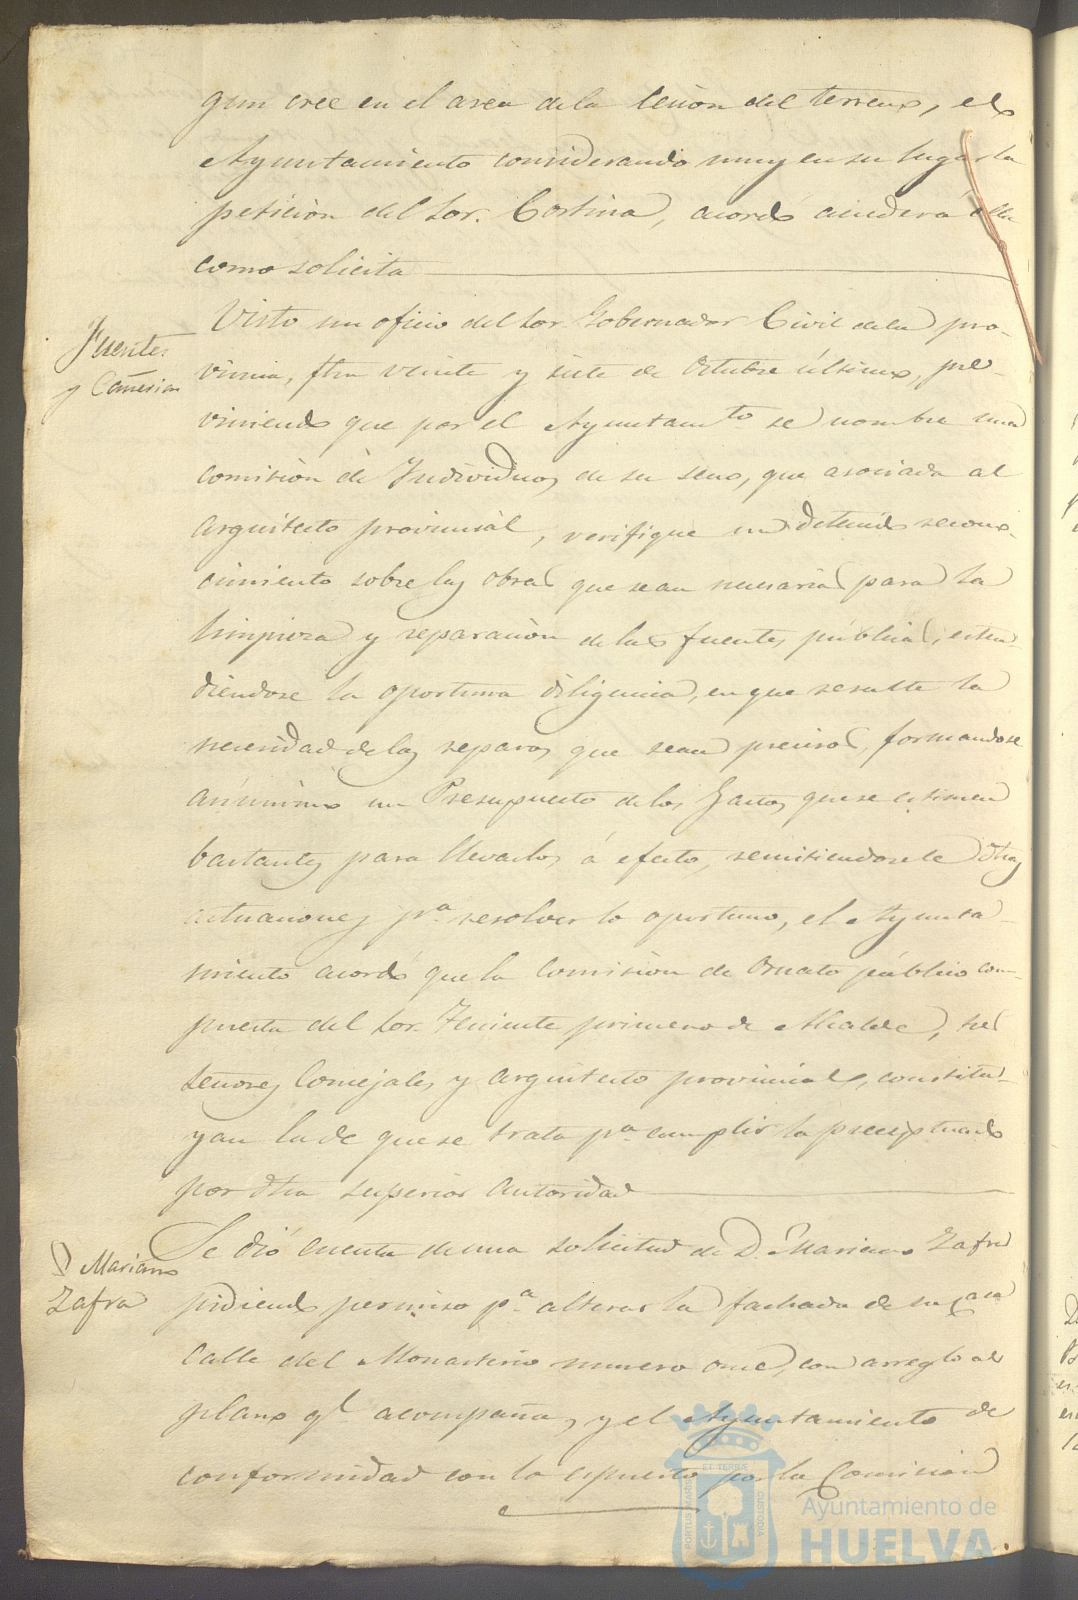 gun cree en el area de la cesion del terreno, el
Ayuntamiento considerando muy en su lugar la
peticion del Sor. Cortina, acordó accedera á ella
como solicita
Fuentes
y Cañerias
Visto un oficio del Sor. Gobernador Civil de la pro-
vincia, fha veinte y siete de Octubre último, pre-
viniendo que por el Ayuntamto se nombre una
comision de Individuos de su seno, que asociada al
Arquitecto provincial, verifique un detenido recono-
cimiento sobre las obras que sean necesarias para la
limpieza y reparacion de las fuentes públicas, esten-
diéndose la oportuna diligencia, en que resulte la
necesidad de los reparos que sean precisos, formandose
asimismo un Presupuesto de los gastos que se estimen
bastantes para llevarlos á efecto, remitiendosele dhas
actuaciones pa. resolver lo oportuno, el Ayunta-
miento acordó que la Comision de Ornato público com-
puesta del Sor. Teniente primero de Alcalde,
señores Concejales y Arquitecto provincial, constitu-
yan la de que se trata pa. cumplir lo preceptuado
por dha superior autoridad
D Mariano
Zafra
Se dió cuenta de una solicitud de D. Mariano Zafra
pidiendo permiso pa. alterar la fachada de su casa
Calle del Monasterio numero once, con arreglo al
plano qe. acompaña, y el Ayuntamiento de
conformidad con lo espuesto por la Comision
PORTUS MARIS
ET TERRÆ
CUSTODIA
Ayuntamiento de
HUELVA